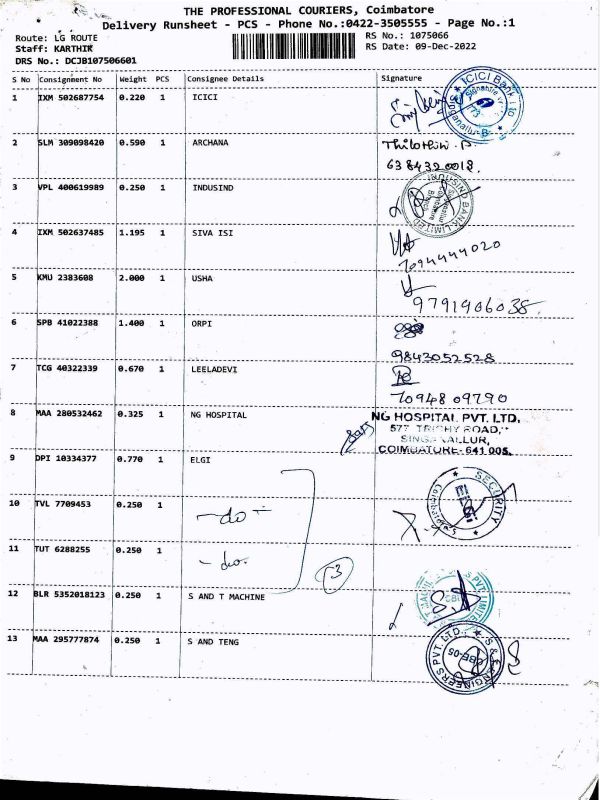 THE PROFESSIONAL COURIERS, Coimbatore
Delivery Runsheet - PCS - Phone No.:0422-3505555 - Page No.:1
Route: LG ROUTE
Staff: KARTHIK
DRS No.: DCJB107506601
RS No.: 1075066
RS Date: 09-Dec-2022
S No Consignment No Weight PCS Consignee Details Signature
1 IXM 502687754 0.220 1 ICICI
ICICI Bank Ltd
2 SLM 309098420 0.590 1 ARCHANA
6384320018.
3 VPL 400619989 0.250 1 INDUSIND
INDUSIND BANK LIMITED
4 IXM 502637485 1.195 1 SIVA ISI
7094444020
5 KMU 2383608 2.000 1 USHA
9791906038.
6 SPB 41022388 1.400 1 ORPI
9843052528
7 TCG 40322339 0.670 1 LEELADEVI
7094809790
8 MAA 280532462 0.325 1 NG HOSPITAL
NG HOSPITAL PVT. LTD.
577 TRICHY ROAD,
SINGANALLUR,
COIMBATORE-641 005.
9 DPI 10334377 0.770 1 ELGI
SECURITY
10 TVL 7709453 0.250 1 -do-
11 TUT 6288255 0.250 1 -do.
3
12 BLR 5352018123 0.250 1 S AND T MACHINE
PVT LIMITED
13 MAA 295777874 0.250 1 S AND TENG
S & T ENGINEERS PVT. LTD.
CBE-05